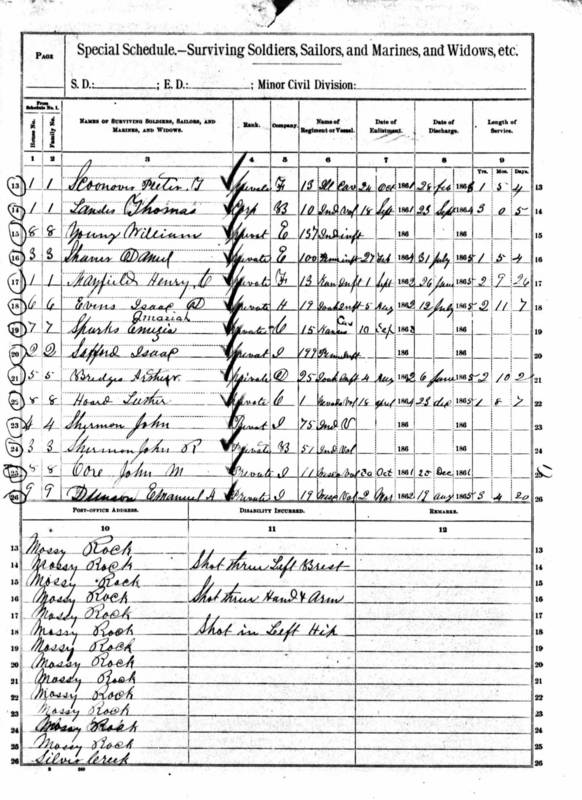 PAGE
Special Schedule.—Surviving Soldiers, Sailors, and Marines, and Widows, etc.
S. D.: ; E. D.: ; Minor Civil Division:
From Schedule No. 1.
House No. Family No. NAMES OF SURVIVING SOLDIERS, SAILORS, AND MARINES, AND WIDOWS. Rank. Company. Name of Regiment or Vessel. Date of Enlistment. Date of Discharge. Length of Service.
1 2 3 4 5 6 7 8 9
Yrs. Mos. Days.
13 1 1 private F 13 Ill Cav 24 Oct 1861 28 feb 186 1 5 4 13
14 1 1 Landis Thomas Corp B 10 Ind Vol 18 Sept 1861 23 Sept 1864 3 0 5 14
15 8 8 Young William privat E 157 186 186 15
16 3 3 Shaver Daniel private E 100 27 Feb 1864 31 July 1865 1 5 4 16
17 1 1 Mayfield Henry C private F 13 1 Sept 1862 26 June 1865 2 9 26 17
18 6 6 Evens Isaac D private H 19 5 Aug 1862 12 July 1865 2 11 7 18
19 7 7 Sparks private C 15 Kansas Cav 10 Sep 186 186 19
20 2 2 Safford Isaac privat I 199 186 186 20
21 5 5 Bridges private D 25 4 Aug 1862 6 June 1865 2 10 2 21
22 8 8 Hoard Luther private C 1 Nevada Vol 18 april 1864 23 dec 1865 1 8 7 22
23 4 4 Shermon John Privat I 75 Ind V 186 186 23
24 3 3 Shermon John R Private B 51 Ind Vol 186 186 24
25 8 8 Core John M Private I 11 Vol Oct 1861 25 Dec 186 25
26 9 9 Emanuel A Private I 19 Vol 2 Mar 1862 19 aug 1865 3 4 20 26
POST-OFFICE ADDRESS. DISABILITY INCURRED. REMARKS.
10 11 12
13 Mossy Rock 13
14 Mossy Rock Shot threw Left Brest 14
15 Mossy Rock 15
16 Mossy Rock Shot threw Hand & Arm 16
17 Mossy Rock 17
18 Mossy Rock Shot in Left Hip 18
19 Mossy Rock 19
20 Mossy Rock 20
21 Mossy Rock 21
22 Mossy Rock 22
23 Mossy Rock 23
24 Mossy Rock 24
25 Mossy Rock 25
26 Creek 26